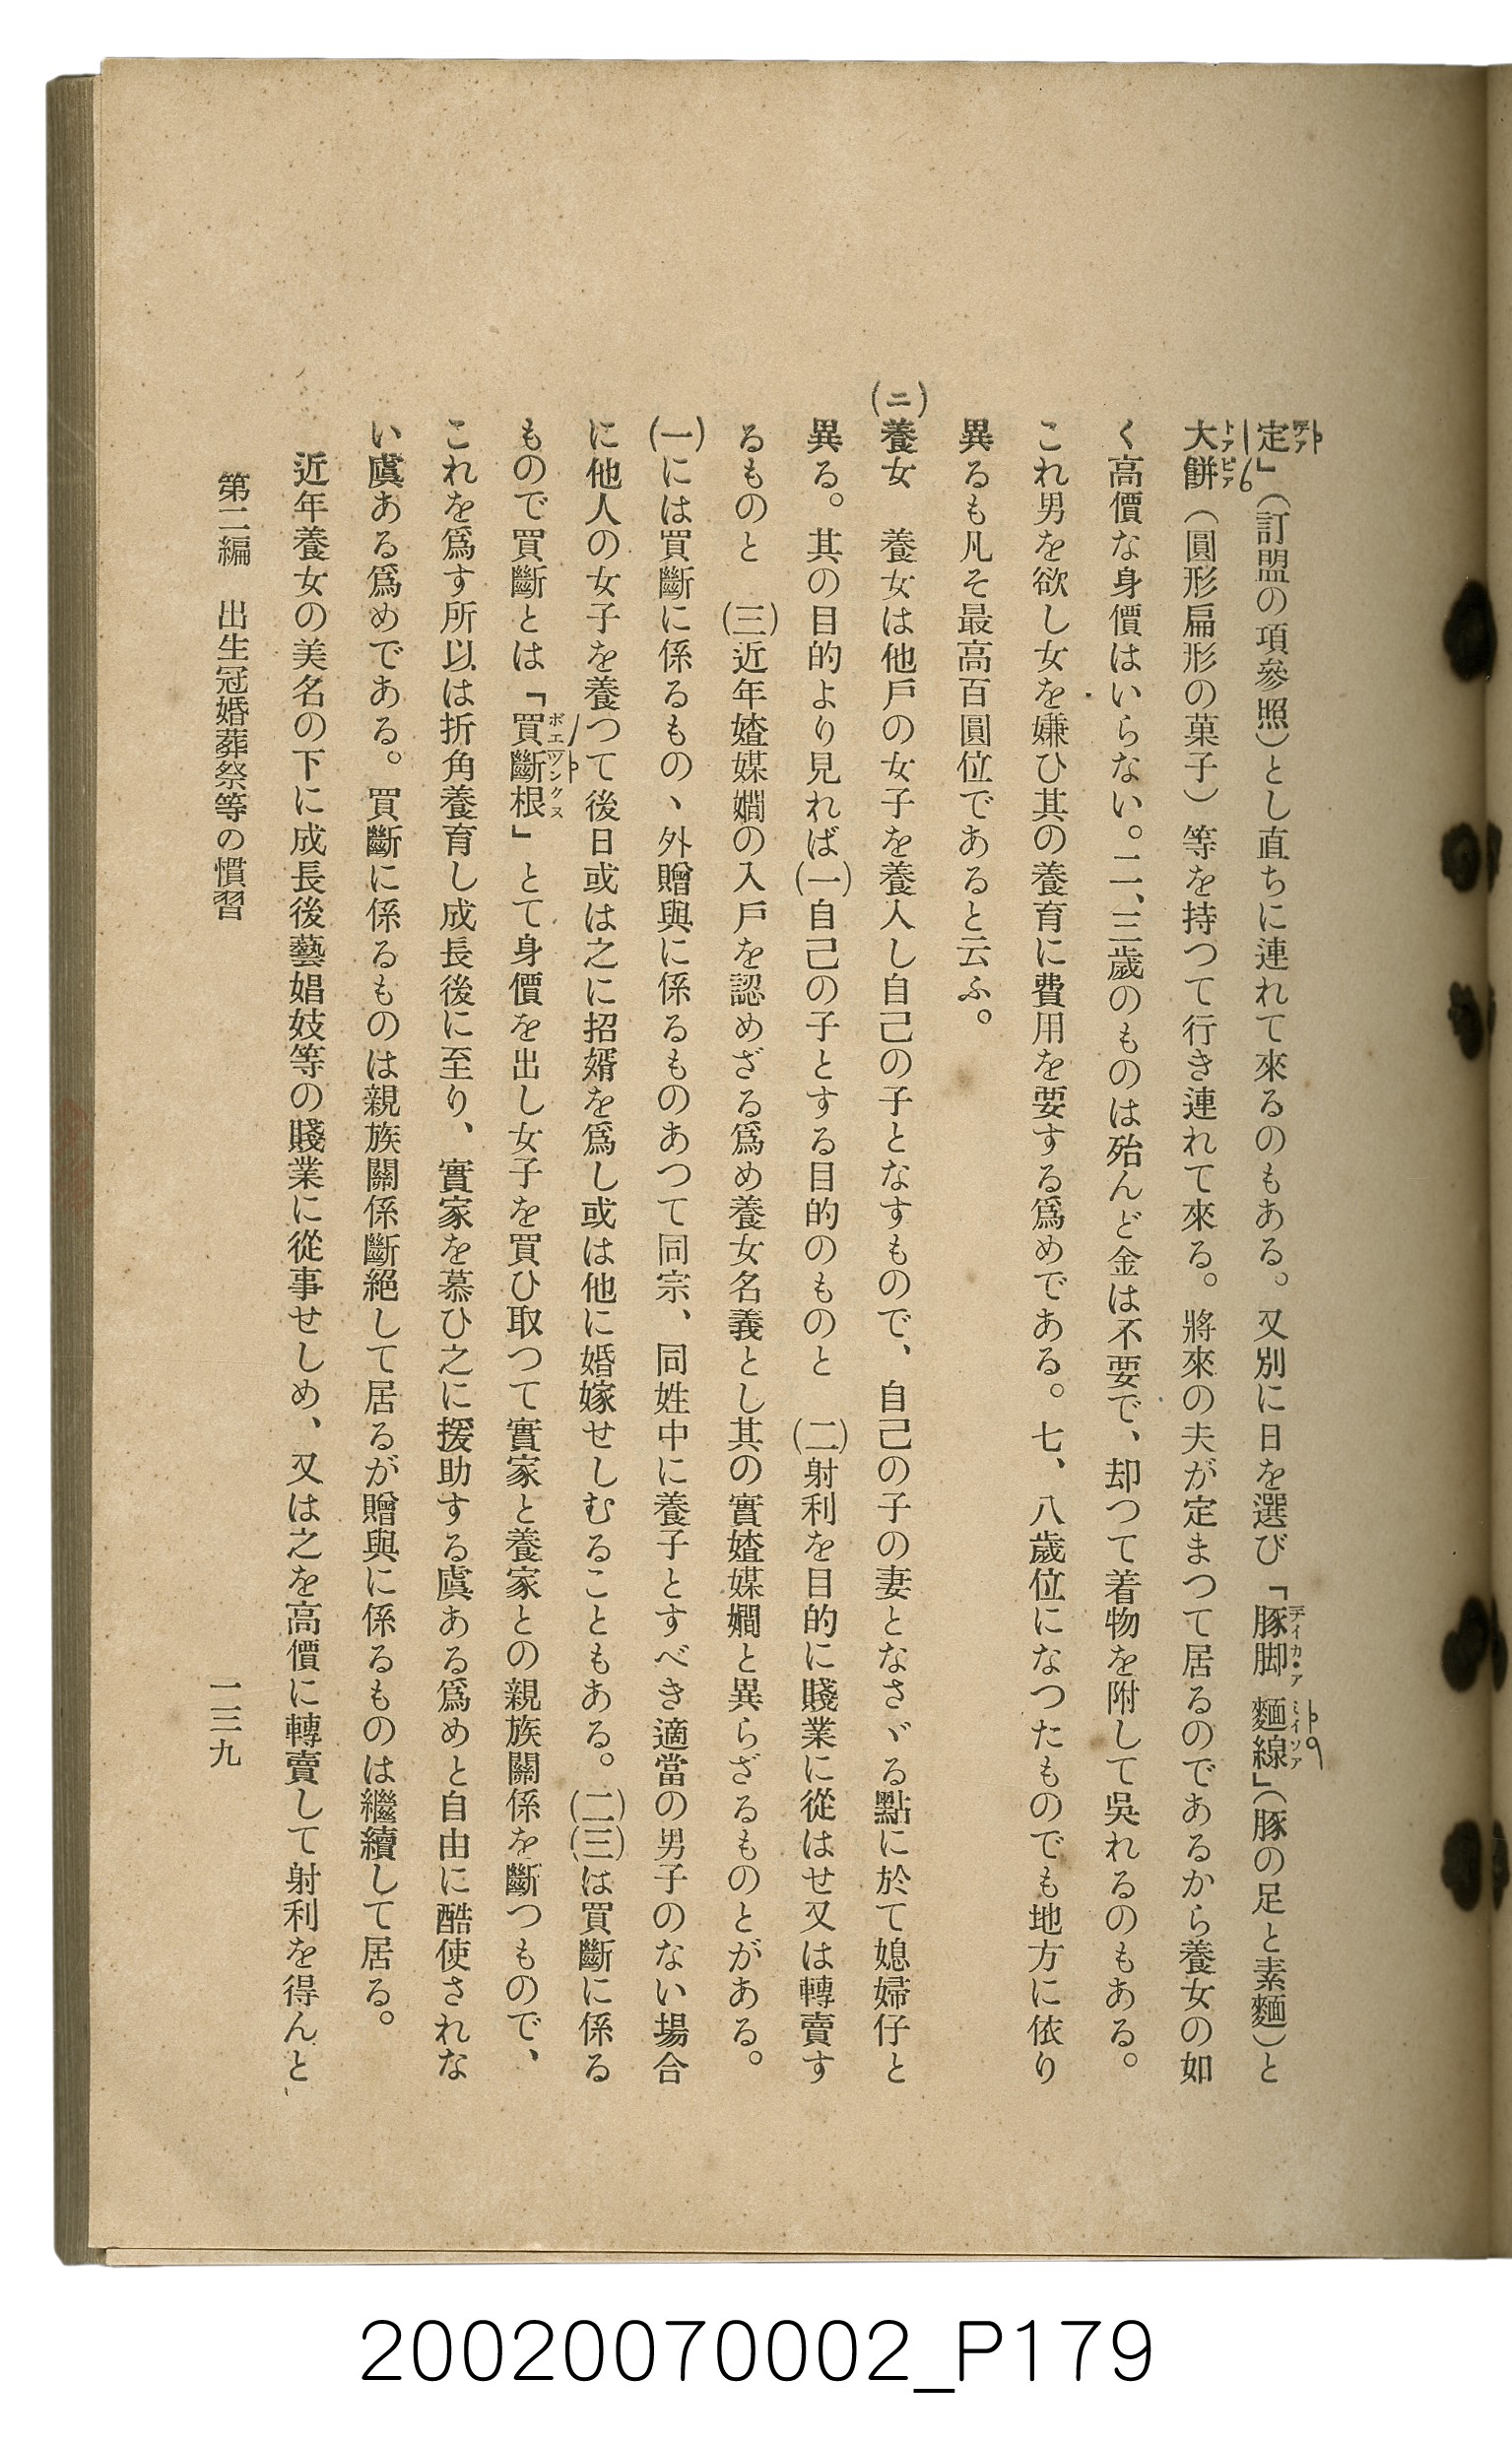 定」（訂盟の項參照）とし直ちに連れて來るのもある。又別に日を選び「豚脚麵線」（豚の足と素麵）と
大餅（圓形扁形の菓子）等を持つて行き連れて來る。將來の夫が定まつて居るのであるから養女の如
く高價な身價はいらない。二、三歲のものは殆んど金は不要で、却つて着物を附して吳れるのもある。
これ男を欲し女を嫌ひ其の養育に費用を要する爲めである。七、八歲位になつたものでも地方に依り
異るも凡そ最高百圓位であると云ふ。
(ニ)養女　養女は他戶の女子を養入し自己の子となすもので、自己の子の妻となさゞる點に於て媳婦仔と
異る。其の目的より見れば(一)自己の子とする目的のものと　(二)射利を目的に賤業に從はせ又は轉賣す
るものと　(三)近年媎媒嫺の入戶を認めざる爲め養女名義とし其の實媎媒嫺と異らざるものとがある。
(一)には買斷に係るもの、外贈與に係るものあつて同宗、同姓中に養子とすべき適當の男子のない場合
に他人の女子を養つて後日或は之に招婿を爲し或は他に婚嫁せしむることもある。(二)(三)は買斷に係る
もので買斷とは「買斷根」とて身價を出し女子を買ひ取つて實家と養家との親族關係を斷つもので、
これを爲す所以は折角養育し成長後に至り、實家を慕ひ之に援助する虞ある爲めと自由に酷使されな
い虞ある爲めである。買斷に係るものは親族關係斷絕して居るが贈與に係るものは繼續して居る。
近年養女の美名の下に成長後藝娼妓等の賤業に從事せしめ、又は之を高價に轉賣して射利を得んと
第二編　出生冠婚葬祭等の慣習
一三九
20020070002_P179